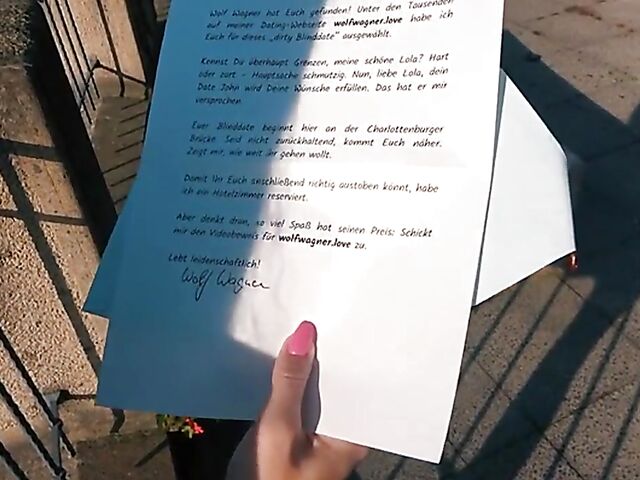 Wolf Wagner hat Euch gefunden! Unter den Tausenden
auf meiner Dating-Webseite wolfwagner.love habe ich
Euch für dieses „dirty Blinddate" ausgewählt.
Kennst Du überhaupt Grenzen, meine schöne Lola? Hart
oder zart - Hauptsache schmutzig. Nun, liebe Lola, dein
Date John wird Deine Wünsche erfüllen. Das hat er mir
versprochen.
Euer Blinddate beginnt hier an der Charlottenburger
Brücke. Seid nicht zurückhaltend, kommt Euch näher.
Zeigt mir, wie weit ihr gehen wollt.
Damit Ihr Euch anschließend richtig austoben könnt, habe
ich ein Hotelzimmer reserviert.
Aber denkt dran, so viel Spaß hat seinen Preis: Schickt
mir den Videobeweis für wolfwagner.love zu.
Lebt leidenschaftlich!
Wolf Wagner